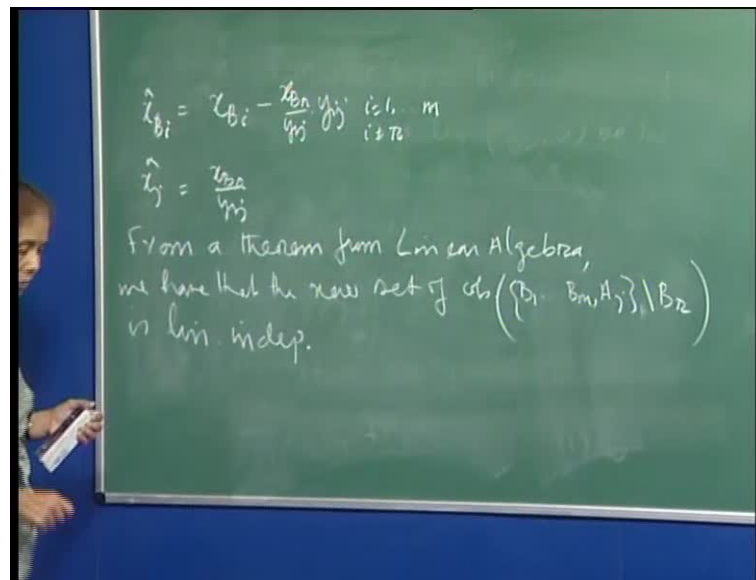 x̂_{Bi} = x_{Bi} - x_{Br}/y_{rj} y_{ij} i=1, .. m
i≠r
x̂_j = x_{Br}/y_{rj}
From a theorem from Linear Algebra,
we have that the new set of cols ({B_1 .. B_m, A_j} \ B_r)
is lin. indep.